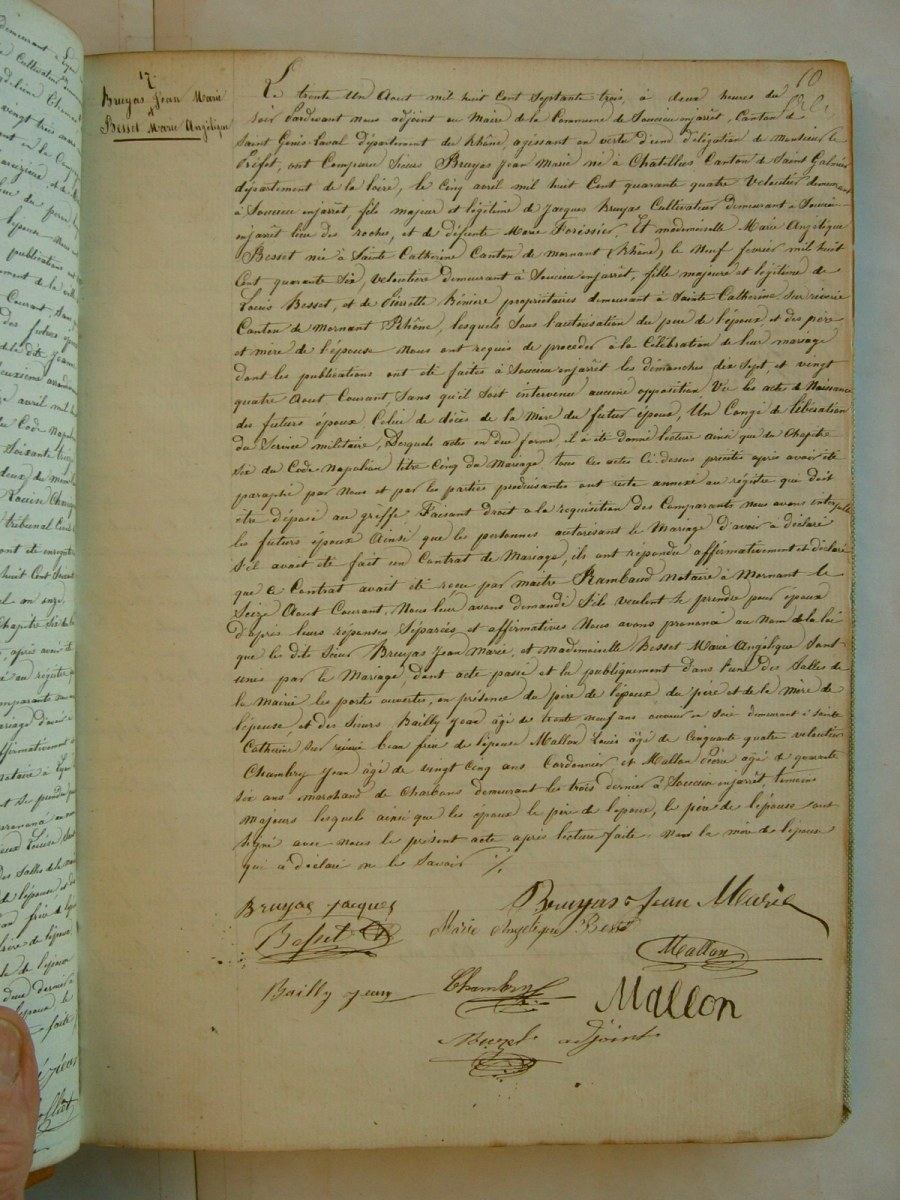 17.
Bruyas Jean Marie
et
Besset Marie Angélique
10
Le trente un Aout mil huit Cent Septante trois, à deux heures du
soir Pardevant nous adjoint au Maire de la Commune de Soucieu enjarrêt, Canton de
Saint Genis Laval département du Rhône, agissant en vertu d'une délégation de Monsieur le
Préfet, ont Comparu Sieur Bruyas Jean Marie né à Chatelus Canton de Saint Galmier
département de la loire, le cinq avril mil huit Cent quarante quatre Veloutier demeurant
à Soucieu enjarrêt, fils majeur et légitime de Jacques Bruyas Cultivateur demeurant à Soucieu
enjarrêt lieu des roches, et de défunte Marie Forissier. Et mademoiselle Marie Angélique
Besset née à Sainte Catherine Canton de mornant (Rhône), le Neuf fevrier mil huit
Cent quarante Six, Veloutiere demeurant à Soucieu enjarrêt, fille majeure et légitime de
Louis Besset, et de Pierrette Bénière propriétaires demeurant à Sainte Catherine Sur riverie
Canton de Mornant Rhône, lesquels Sous l'autorisation du pere de l'époux et des pere
et mère de l'épouse Nous ont requis de procéder à la Célébration de leur mariage
dont les publications ont été faites à Soucieu enjarrêt les dimanches dix Sept, et vingt
quatre Aout Courant, Sans qu'il Soit intervenu aucune opposition. Vu les actes de Naissance
du futurs époux Celui de décès de la Mère du futur époux, Un Congé de libération
du Service militaire, Desquels actes en due forme il a été donné lecture ainsi que du Chapitre
Six du Code Napoléon titre Cinq du Mariage, tous Ces actes Ci-dessus précités après avoir été
paraphé par Nous et par les parties produisantes ont resté annexé au régistre qui doit
être déposé au greffe. Faisant droit a la requisition des Comparants nous avons interpellé
les futurs époux Ainsi que les personnes autorisant le Mariage d'avoir à déclaré
S'il avait été fait un Contrat de Mariage, ils ont répondu affirmativement et déclaré
que ce Contrat avait été reçu par maitre Rambaud notaire à Mornant le
Seize Aout Courant, Nous leur avons demandé S'ils veulent se prendre pour époux
D'après leurs réponses Séparées et affirmatives Nous avons prononcé au Nom de la loi
que les dits Sieur Bruyas Jean Marie, et Mademoiselle Besset Marie Angélique Sont
unis par le Mariage, dont acte passé et lu publiquement dans l'une des Salles de
la mairie les portes ouvertes, en présence du père de l'époux du père et de la mère de
l'épouse, et des Sieurs Bailly Jean âgé de trente neuf ans ouvrier en Soie demeurant à Sainte
Catherine Sur riverie beau frère de l'épouse Mallon Louis âgé de Cinquante quatre veloutier
Chambry Jean âgé de vingt Cinq ans Cordonnier et Mallon Pierre âgé de quarante
Six ans marchand de Charbons demeurant les trois dernier à Soucieu enjarrêt temoins
majeurs lesquels ainsi que les époux le père de l'époux, le père de l'épouse ont
signé avec nous le présent acte après lecture faite. Non la mère de l'épouse
qui a déclaré ne le Savoir ./.
Bruyas Jacques
Bruyas Jean Marie
Besset
Marie Angélique Besset
Mallon
Bailly Jean
Chambry
Mallon
adjoint